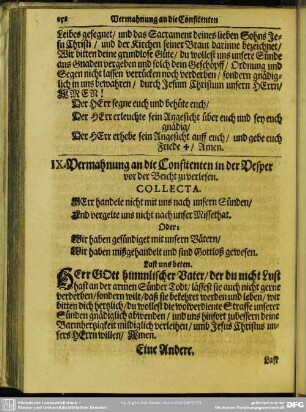 Vermahnung an die Confitenten
Leibes gesegnet/ und das Sacrament deines lieben Sohns Je-
su Christi/ und der Kirchen seiner Braut darinne bezeichnet/
Wir bitten deine grundlose Güte/ du wollest uns unsere Sünde
aus Gnaden vergeben und solch dein Geschöpff/ Ordnung und
Segen nicht lassen verrücken noch verderben/ sondern gnädig-
lich in uns bewahren/ durch Jesum Christum unsern HErrn/
AMEN!
Der HErr segne euch und behüte euch/
Der HErr erleuchte sein Angesicht über euch und sey euch
gnädig/
Der HErr erhebe sein Angesicht auff euch/ und gebe euch
Friede +/ Amen.
IX. Vermahnung an die Confitenten in der Vesper
vor der Beicht zu verlesen.
COLLECTA.
HErr handele nicht mit uns nach unsern Sünden/
Und vergelte uns nicht nach unser Missethat.
Oder:
Wir haben gesündiget mit unsern Vätern/
Wir haben mißgehandelt und sind Gottloß gewesen.
Last uns beten.
HErr GOtt himmlischer Vater/ der du nicht Lust
hast an der armen Sünder Tod/ lässest sie auch nicht gerne
verderben/ sondern wilt/ daß sie bekehret werden und leben/ wir
bitten dich hertzlich/ du wollest die wolverdiente Straffe unserer
Sünden gnädiglich abwenden/ und uns hinfort zubessern deine
Barmhertzigkeit mildiglich verleihen/ umb Jesus Christus un-
sers HErrn willen/ Amen.
Eine Andere.
Last